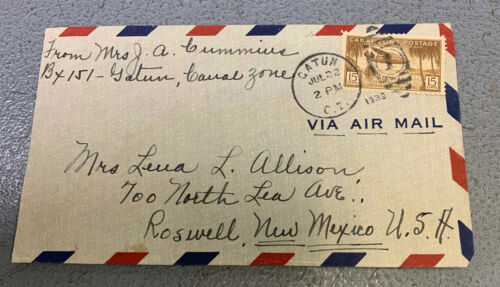 From Mrs J. A. Cummins
Bx 151 - Gatun, Canal Zone
CANAL ZONE POSTAGE
15 15
GATUN
JUL 22
2 PM
1939
C.Z.
VIA AIR MAIL
Mrs Lena L. Allison,
700 North Lea Ave.,
Roswell, New Mexico U.S.A.